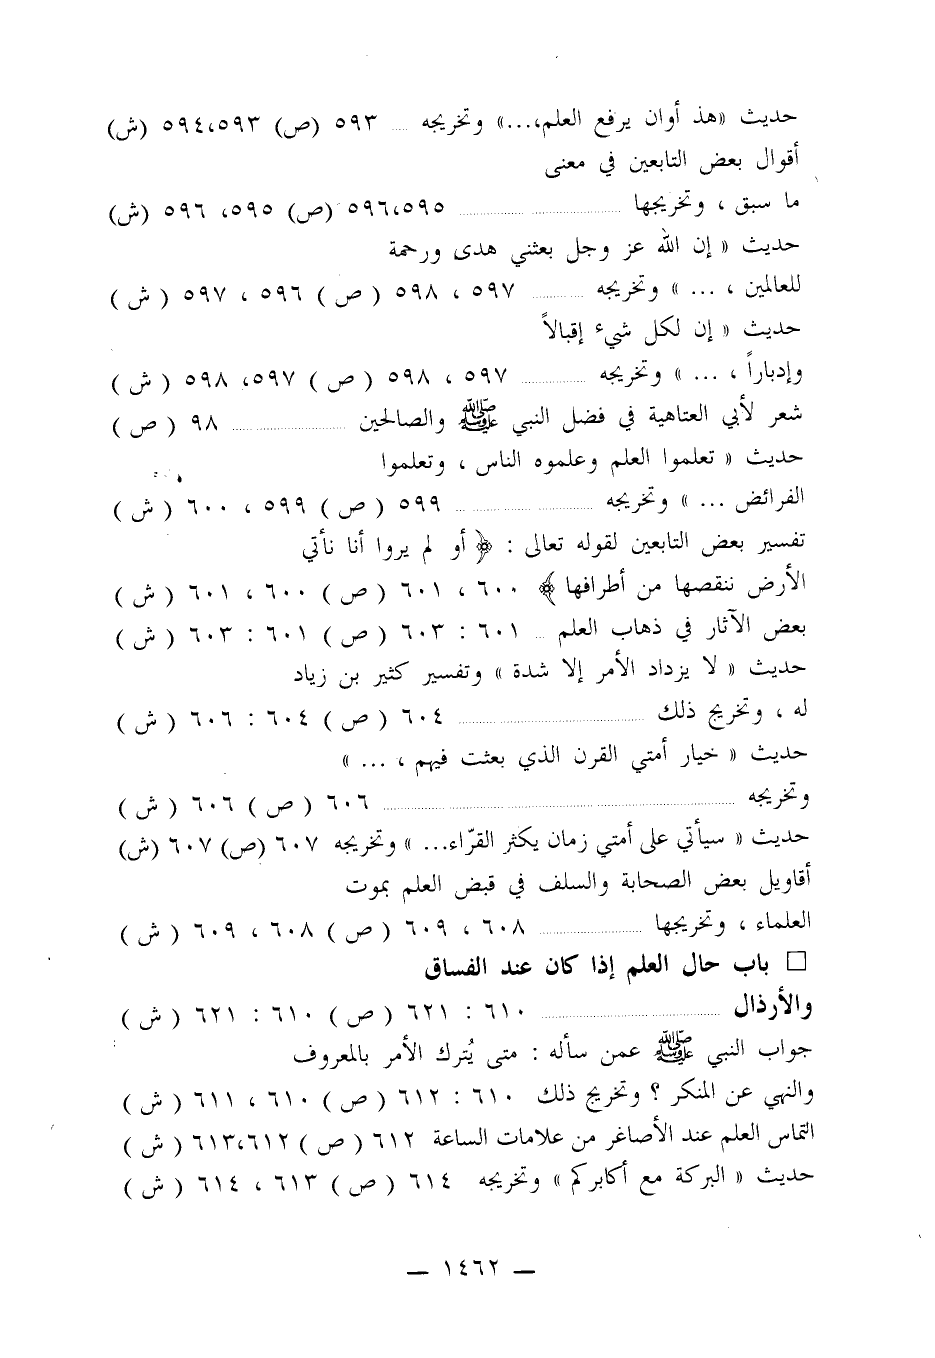 حديث «هذ أوان يرفع العلم،...» وتخريجه ..... ٥٩٣ (ص) ٥٩٤،٥٩٣ (ش)
أقوال بعض التابعين في معنى
ما سبق ، وتخريجها ..... ٥٩٦،٥٩٥ (ص) ٥٩٥، ٥٩٦ (ش)
حديث « إن الله عز وجل بعثني هدى ورحمة
للعالمين ، ... » وتخريجه ..... ٥٩٧ ، ٥٩٨ ( ص ) ٥٩٦ ، ٥٩٧ ( ش )
حديث « إن لكل شيء إقبالاً
وإدباراً ، ... » وتخريجه ..... ٥٩٧ ، ٥٩٨ ( ص ) ٥٩٧، ٥٩٨ ( ش )
شعر لأبي العتاهية في فضل النبي ﷺ والصالحين ..... ٩٨ ( ص )
حديث « تعلموا العلم وعلموه الناس ، وتعلموا
الفرائض ... » وتخريجه ..... ٥٩٩ ( ص ) ٥٩٩ ، ٦٠٠ ( ش )
تفسير بعض التابعين لقوله تعالى : ﴿ أو لم يروا أنا نأتي
الأرض ننقصها من أطرافها ﴾ ٦٠٠ ، ٦٠١ ( ص ) ٦٠٠ ، ٦٠١ ( ش )
بعض الآثار في ذهاب العلم .. ٦٠١ : ٦٠٣ ( ص ) ٦٠١ : ٦٠٣ ( ش )
حديث « لا يزداد الأمر إلا شدة » وتفسير كثير بن زياد
له ، وتخريج ذلك ..... ٦٠٤ ( ص ) ٦٠٤ : ٦٠٦ ( ش )
حديث « خيار أمتي القرن الذي بعثت فيهم ، ... »
وتخريجه ..... ٦٠٦ ( ص ) ٦٠٦ ( ش )
حديث « سيأتي على أمتي زمان يكثر القرّاء... » وتخريجه ٦٠٧ (ص) ٦٠٧ (ش)
أقاويل بعض الصحابة والسلف في قبض العلم بموت
العلماء ، وتخريجها ..... ٦٠٨ ، ٦٠٩ ( ص ) ٦٠٨ ، ٦٠٩ ( ش )
□ باب حال العلم إذا كان عند الفساق
والأرذال ..... ٦١٠ : ٦٢١ ( ص ) ٦١٠ : ٦٢١ ( ش )
جواب النبي ﷺ عمن سأله : متى يُترك الأمر بالمعروف
والنهي عن المنكر ؟ وتخريج ذلك ٦١٠ : ٦١٢ ( ص ) ٦١٠ ، ٦١١ ( ش )
التماس العلم عند الأصاغر من علامات الساعة ٦١٢ ( ص ) ٦١٣،٦١٢ ( ش )
حديث « البركة مع أكابركم » وتخريجه ٦١٤ ( ص ) ٦١٣ ، ٦١٤ ( ش )
— ١٤٦٢ —